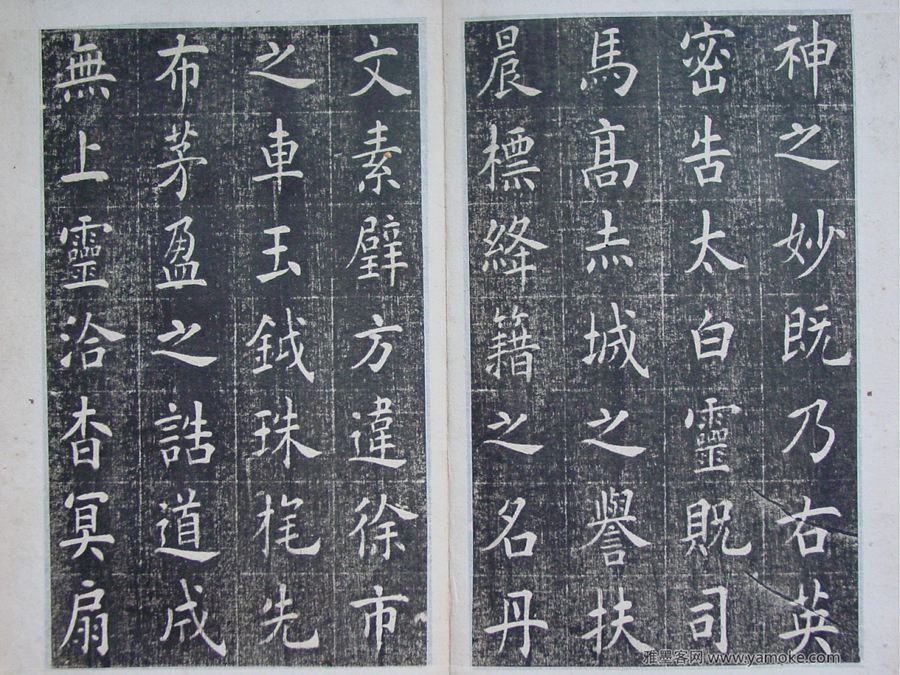 神之妙既乃右英
密告太白靈貺司
馬高赤城之譽扶
晨標絳籍之名丹
文素壁方違徐市
之車玉鉞珠旄先
布茅盈之誥道成
無上靈洽杳冥扇
雅墨客网 www.yamoke.com